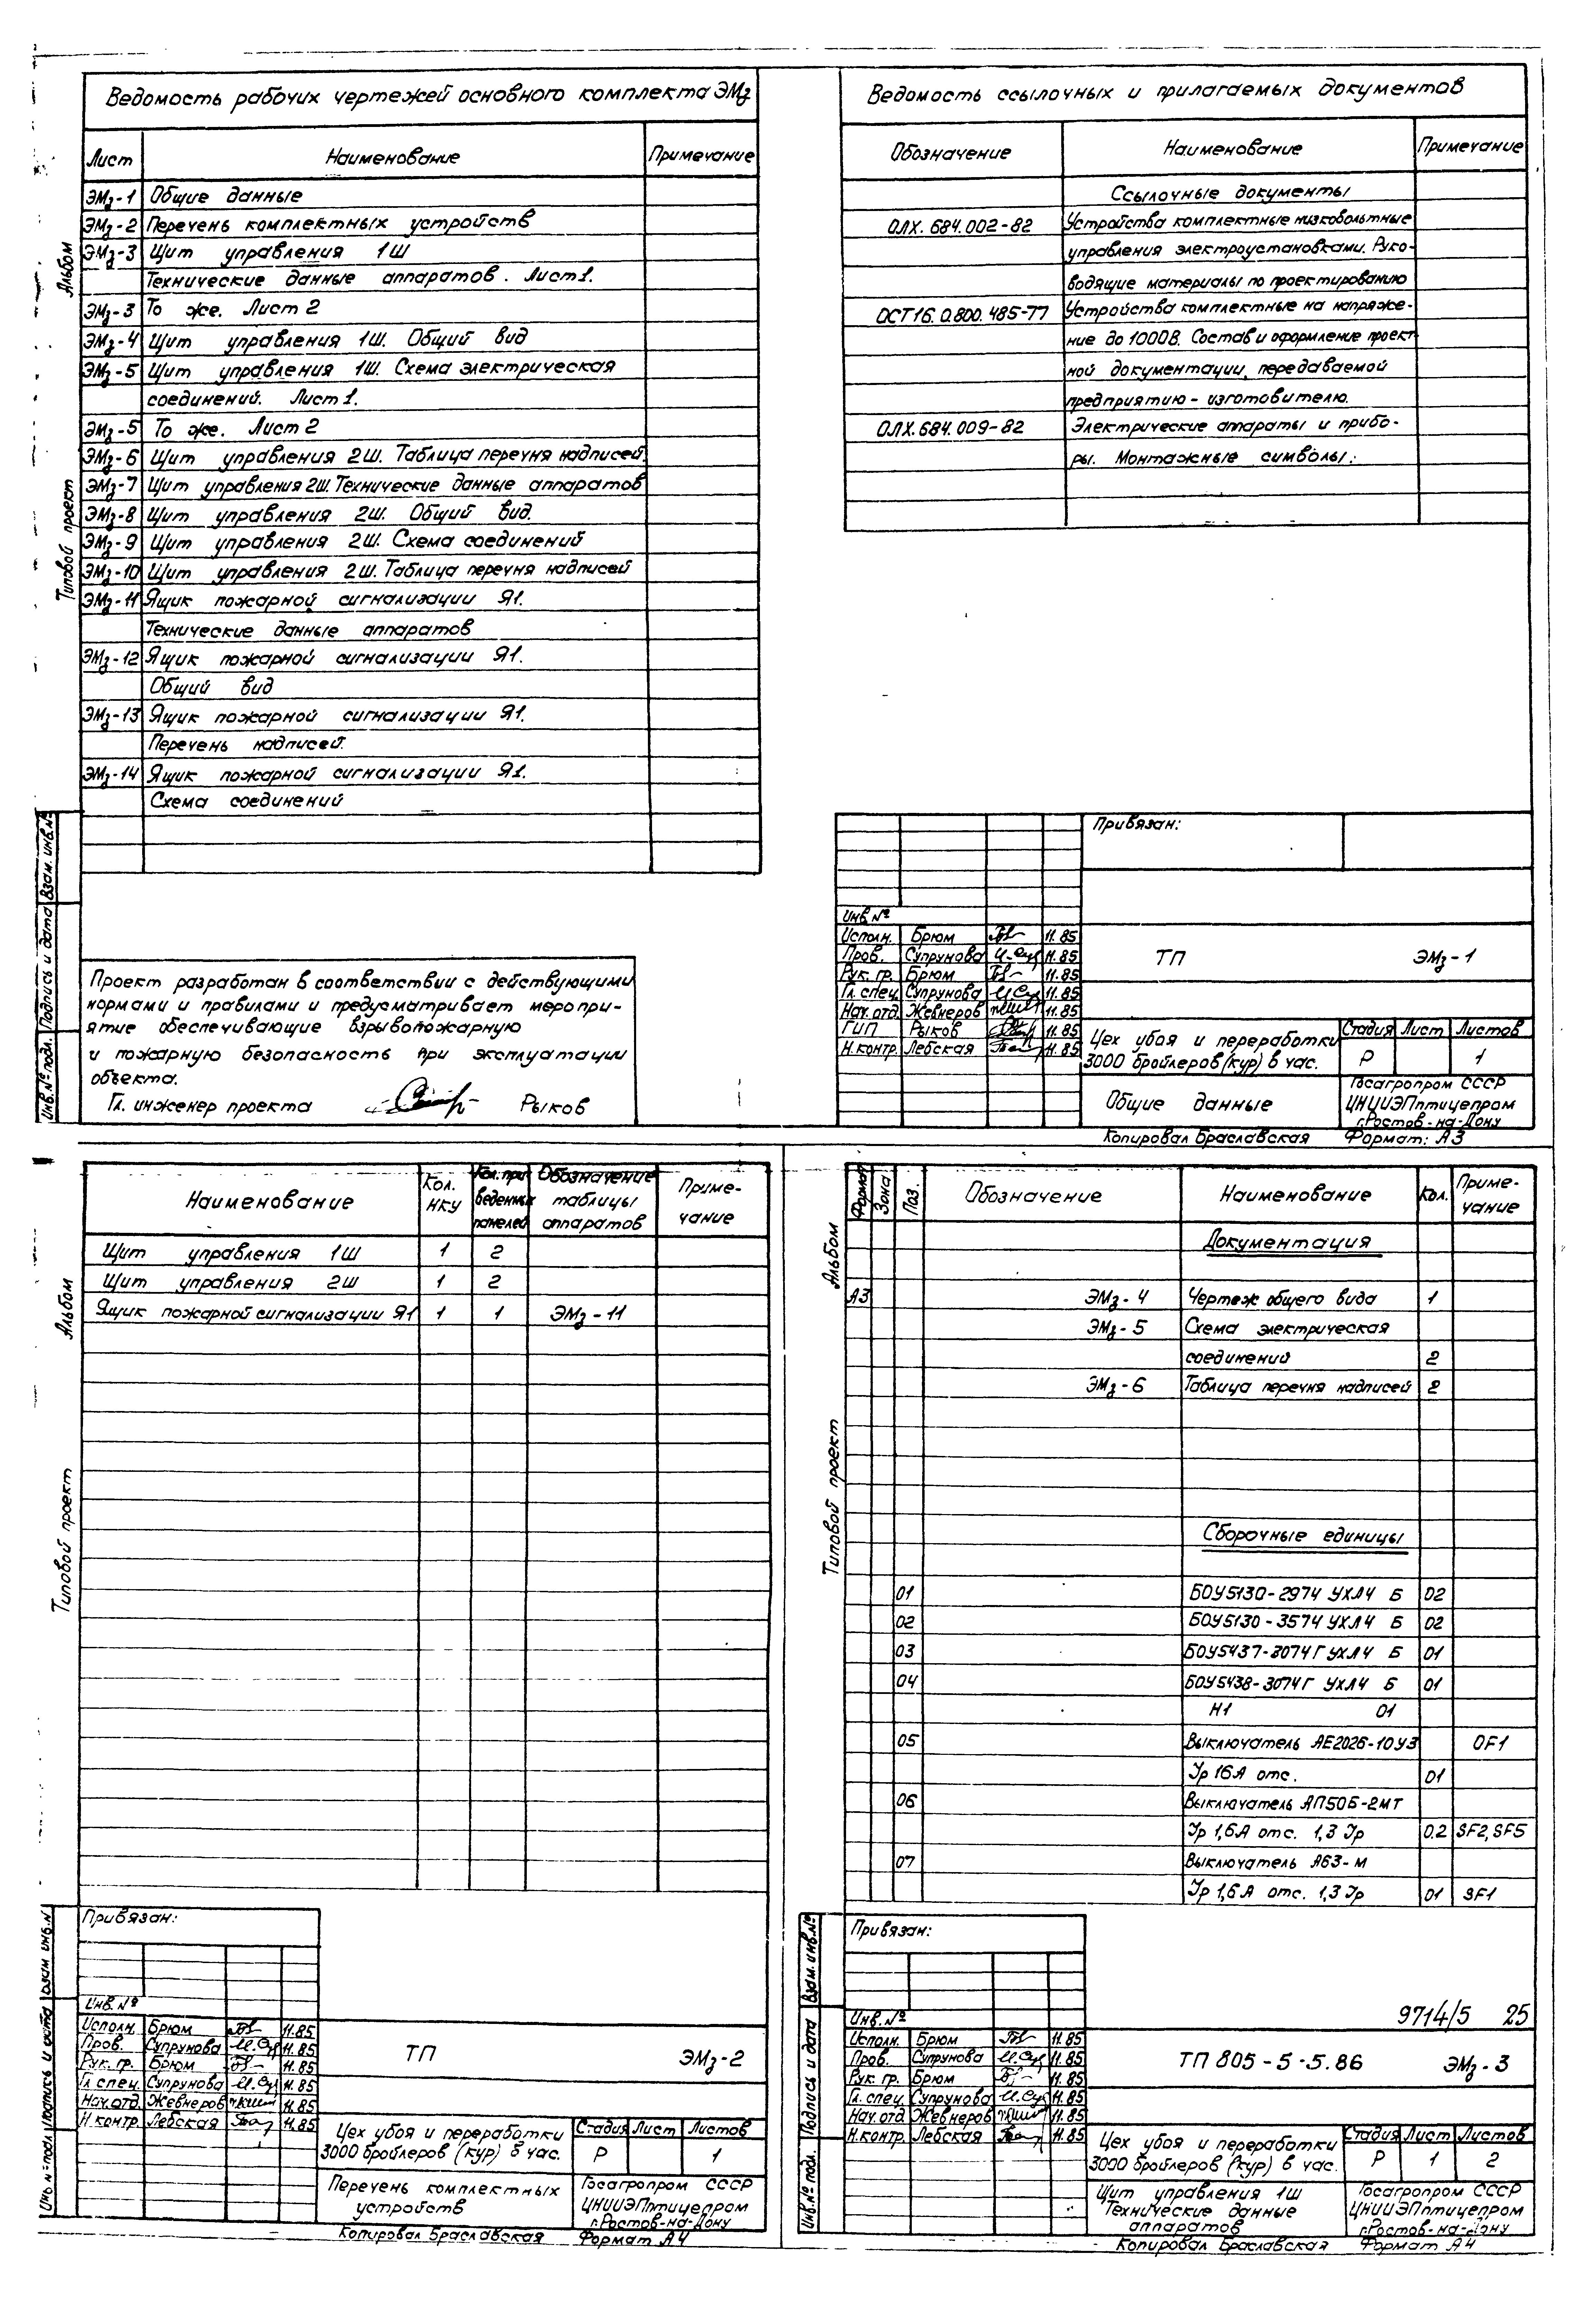 Ведомость рабочих чертежей основного комплекта ЭМз
Лист Наименование Примечание
ЭМз-1 Общие данные
ЭМз-2 Перечень комплектных устройств
ЭМз-3 Щит управления 1Ш
Технические данные аппаратов. Лист 1.
ЭМз-3 То же. Лист 2
ЭМз-4 Щит управления 1Ш. Общий вид
ЭМз-5 Щит управления 1Ш. Схема электрическая
соединений. Лист 1.
ЭМз-5 То же. Лист 2
ЭМз-6 Щит управления 2Ш. Таблица перечня надписей.
ЭМз-7 Щит управления 2Ш. Технические данные аппаратов
ЭМз-8 Щит управления 2Ш. Общий вид.
ЭМз-9 Щит управления 2Ш. Схема соединений
ЭМз-10 Щит управления 2Ш. Таблица перечня надписей
ЭМз-11 Ящик пожарной сигнализации Я1.
Технические данные аппаратов
ЭМз-12 Ящик пожарной сигнализации Я1.
Общий вид
ЭМз-13 Ящик пожарной сигнализации Я1.
Перечень надписей.
ЭМз-14 Ящик пожарной сигнализации Я1.
Схема соединений
Альбом
Типовой проект
Инв.№ подл. Подпись и дата Взам. инв.№
Проект разработан в соответствии с действующими
нормами и правилами и предусматривает меропри-
ятие обеспечивающие взрывопожарную
и пожарную безопасность при эксплуатации
объекта.
Гл. инженер проекта Рыков
Ведомость ссылочных и прилагаемых документов
Обозначение Наименование Примечание
Ссылочные документы
ОЛХ.684.002-82 Устройства комплектные низковольтные
управления электроустановками. Руко-
водящие материалы по проектированию
ОСТ16.0.800.485-77 Устройства комплектные на напряже-
ние до 1000В. Состав и оформление проект-
ной документации, передаваемой
предприятию-изготовителю.
ОЛХ.684.009-82 Электрические аппараты и прибо-
ры. Монтажные символы.
Привязан:
Инв.№
Исполн. Брюм 11.85
Пров. Супрунова 11.85
Рук. гр. Брюм 11.85
Гл. спец. Супрунова 11.85
Нач. отд. Жевнеров 11.85
ГИП Рыков 11.85
Н.контр. Лебская 11.85
ТП ЭМз-1
Цех убоя и переработки
3000 бройлеров (кур) в час.
Стадия Лист Листов
Р 1
Общие данные
Госагропром СССР
ЦНИИЭПптицепром
г.Ростов-на-Дону
Копировал Браславская Формат: А3
Наименование Кол. НКУ Кол. при веденных панелей Обозначение таблицы аппаратов Приме-чание
Щит управления 1Ш 1 2
Щит управления 2Ш 1 2
Ящик пожарной сигнализации Я1 1 1 ЭМз-11
Альбом
Типовой проект
Инв.№ подл. Подпись и дата Взам. инв.№
Привязан:
Инв.№
Исполн. Брюм 11.85
Пров. Супрунова 11.85
Рук. гр. Брюм 11.85
Гл. спец. Супрунова 11.85
Нач. отд. Жевнеров 11.85
Н.контр. Лебская 11.85
ТП ЭМз-2
Цех убоя и переработки
3000 бройлеров (кур) в час.
Стадия Лист Листов
Р 1
Перечень комплектных
устройств
Госагропром СССР
ЦНИИЭПптицепром
г.Ростов-на-Дону
Копировал Браславская Формат А4
Формат Зона Поз. Обозначение Наименование Кол. Приме-чание
Документация
А3 ЭМз-4 Чертеж общего вида 1
ЭМз-5 Схема электрическая
соединений 2
ЭМз-6 Таблица перечня надписей 2
Сборочные единицы
01 БОУ5130-2974 УХЛ4 Б 02
02 БОУ5130-3574 УХЛ4 Б 02
03 БОУ5437-3074Г УХЛ4 Б 01
04 БОУ5438-3074Г УХЛ4 Б 01
Н1 01
05 Выключатель АЕ2026-10У3 QF1
Iр 16А отс. 01
06 Выключатель АП50Б-2МТ
Iр 1,6А отс. 1,3 Iр 02 SF2, SF5
07 Выключатель А63-М
Iр 1,6А отс. 1,3 Iр 01 SF1
Альбом
Типовой проект
Инв.№ подл. Подпись и дата Взам. инв.№
Привязан:
9714/5 25
Инв.№
Исполн. Брюм 11.85
Пров. Супрунова 11.85
Рук. гр. Брюм 11.85
Гл. спец. Супрунова 11.85
Нач. отд. Жевнеров 11.85
Н.контр. Лебская 11.85
ТП 805-5-5.86 ЭМз-3
Цех убоя и переработки
3000 бройлеров (кур) в час.
Стадия Лист Листов
Р 1 2
Щит управления 1Ш
Технические данные
аппаратов
Госагропром СССР
ЦНИИЭПптицепром
г.Ростов-на-Дону
Копировал Браславская Формат А4